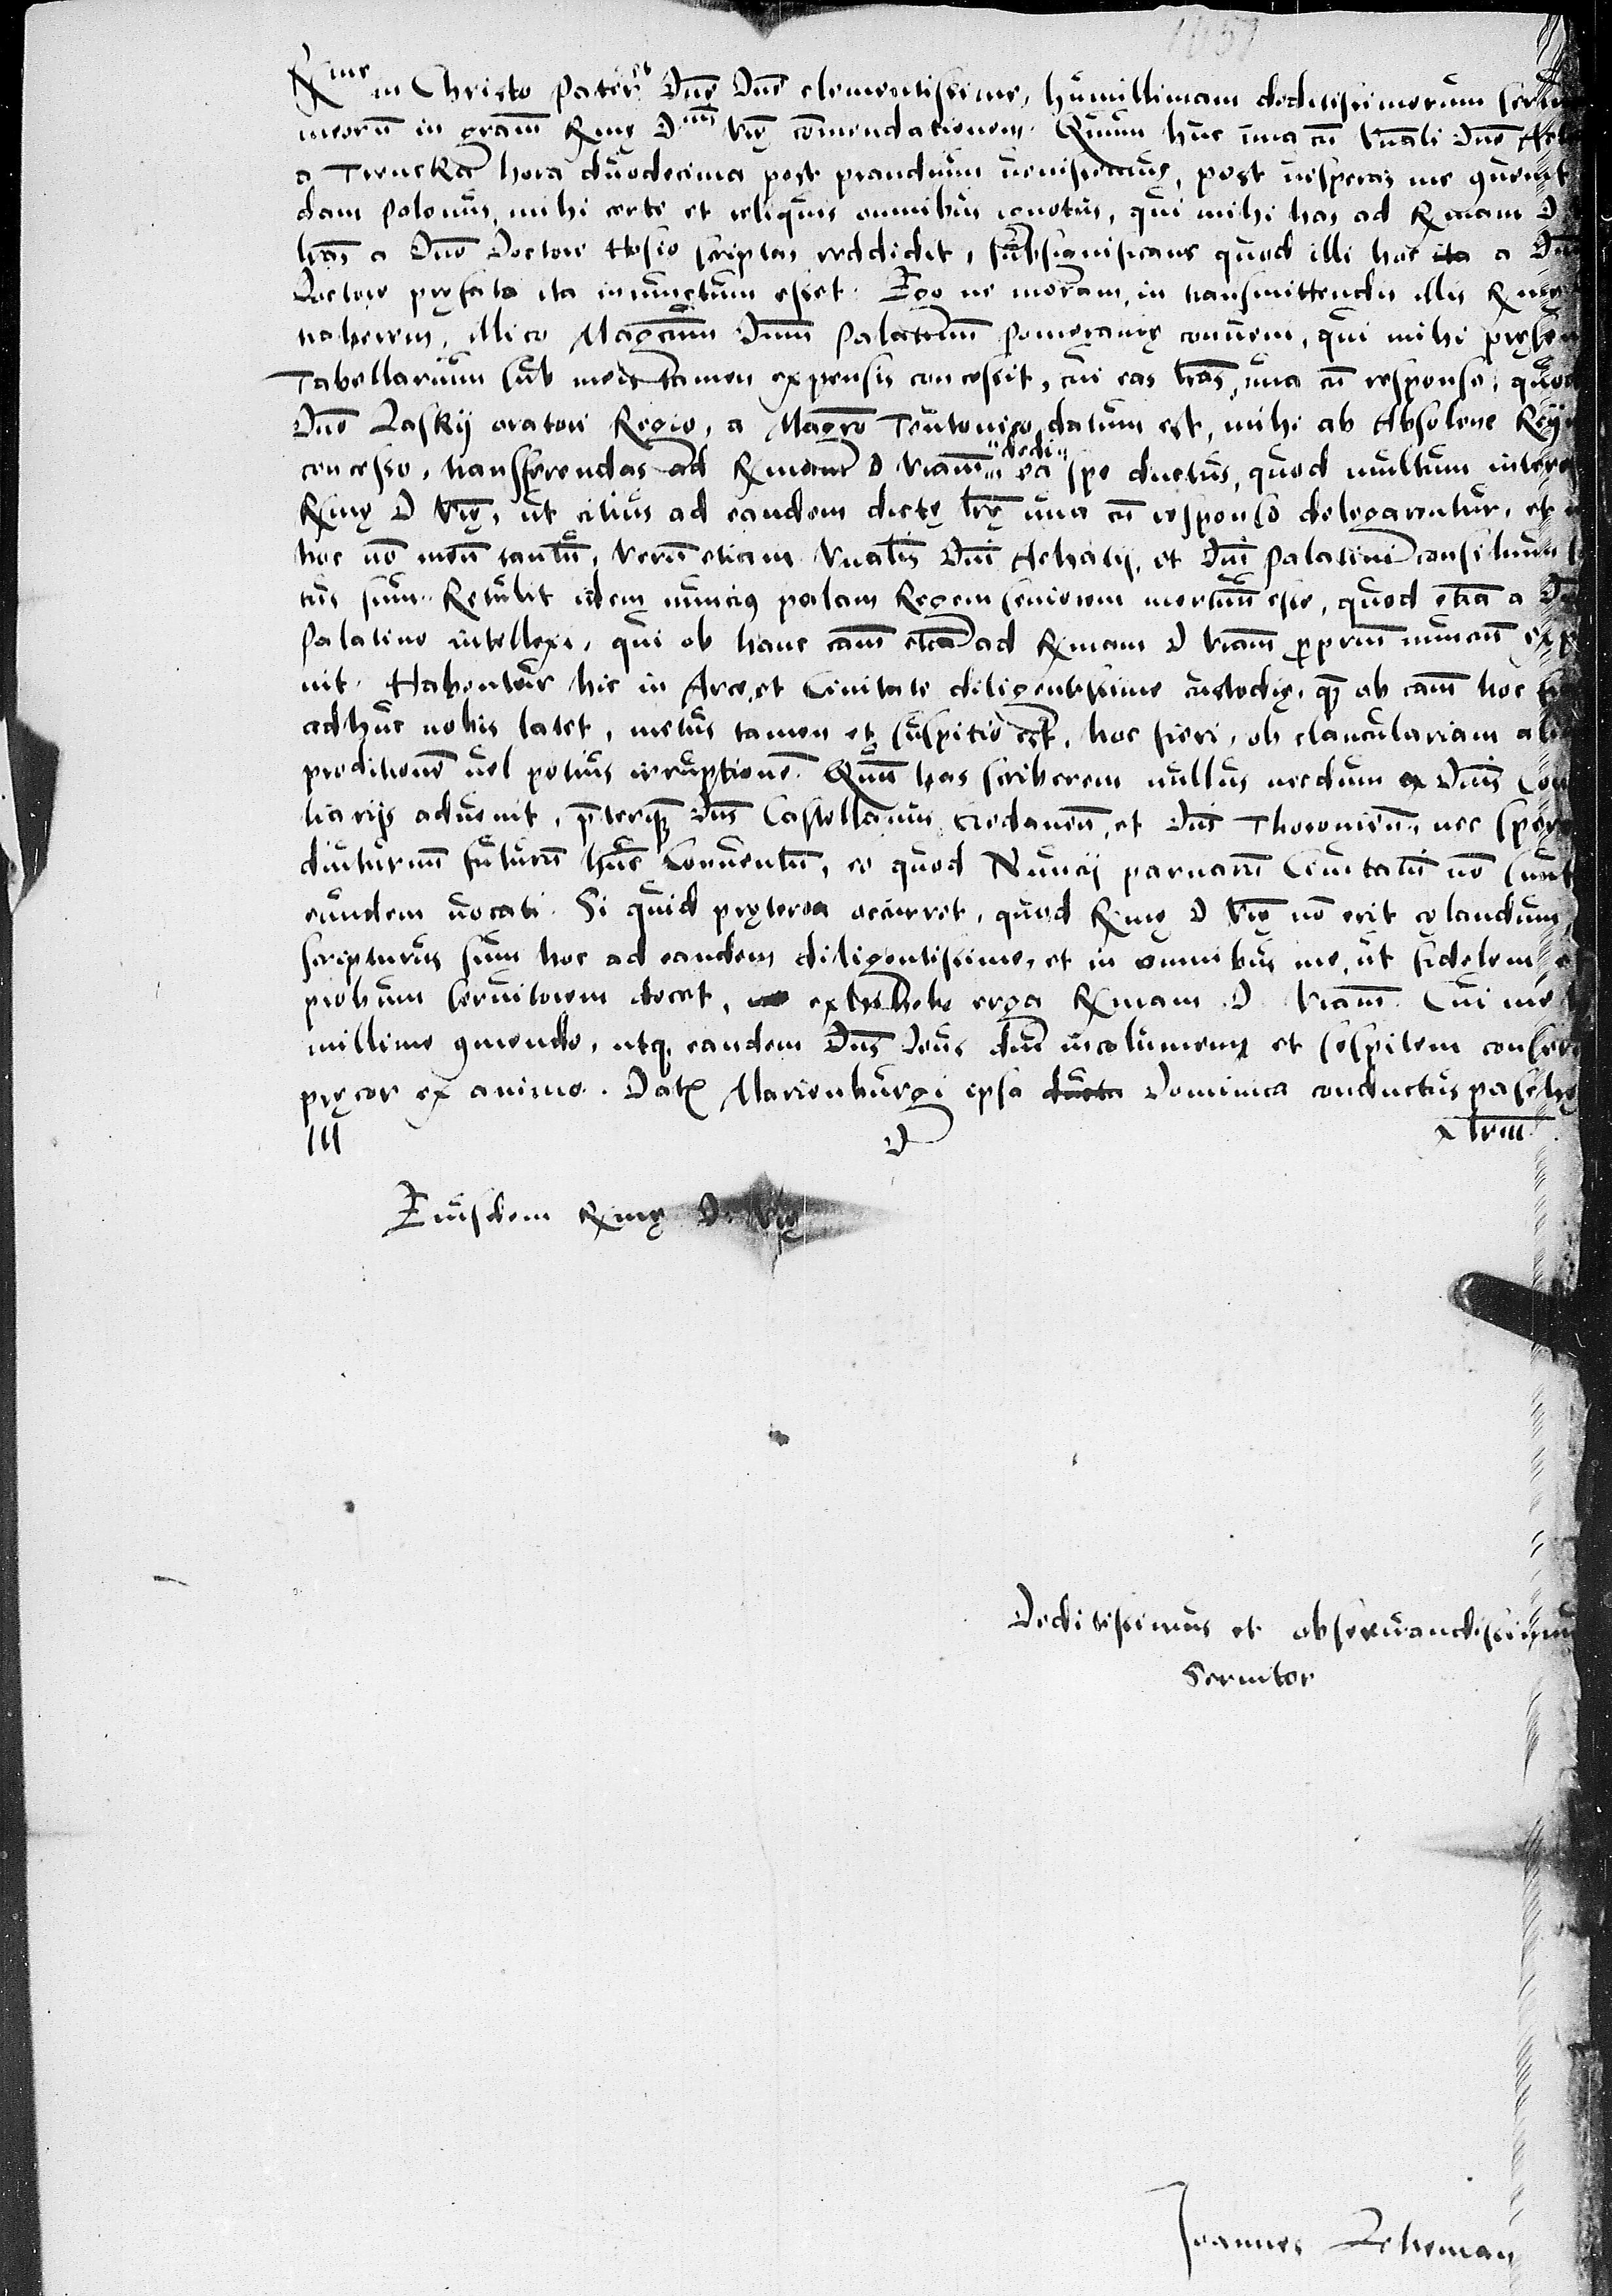 1057
R me in Christo Pater et Dne Dne clementissime, humillimam deditissimorum
meorū in gram Rme D Vre comendationem. Quum huc una cū Vnabili Dno
a Trencka hora duodecima post prandium uenissemus, post uesperas me
dam Polonus, mihi certe et reliquis omnibus ignotus, qui mihi has ad Rmam D
lras a Dno Doctore Hosio scriptas reddidit, subsignificans quod illi hoc ita a
Doctore pręfato ita iniunctum esset. Ego ne moram, in transmittendis illis
traherem, illico Magcum Dnum Palatinum Pomeranię conueni, qui mihi
Tabellarium sub meis tamen expensis concessit, cui eas lras, una cū responso, quod
Dno Laskij oratori Regio, a Magro Teutonico datum est, mihi ab Absolone
concesso, transferendas ad Rmam D Vram dedi ea spe ductus, quod multum
Rmę D Vrę, ut citius ad eandem dictę lrę una cū responso delegarentur, et
hoc nō meū tantū, verū etiam Vnabilis Dni Achatij, et Dni Palatini consilium
tus sum. Retulit idem nuncius palam Regem seniorem mortuū esse, quod etiā a
Palatino intellexi, qui ob hanc cām etiā ad Rmam D Vram propriū nunciū
nit. Habentur hic in Arce, et Ciuitate diligentissime custodię, quā ob cām hoc
adhuc nobis latet, metus tamen et suspitio est, hoc fieri, ob clanculariam
proditionē uel potius irruptionē. Quū has scriberem nullus necdum ex Dnis
liarijs aduenit, pręterquā Dns Castellanus Gedanen, et Dns Thoronien, nec
diuturnū futurū hunc Conuentū, eo quod Nuncij paruarū Ciuitatū nō sunt
eundem uocati. Si quid pręterea occurret, quod Rmę D Vrę nō erit cęlandum,
scripturus sum hoc ad eandem diligentissime, et in omnibus me, ut fidelem
probum seruitorem decet, exhibebo erga Rmam D Vram. Cui me
millime cōmendo, utq eandem Dns Deus diu incolumem et sospitem
pręcor ex animo. Datę Marienburgi ipsa ducta Dominica conductus paschę
D
Eiusdem Rmę D. Vrę
Deditissimus et obseruandissimus
Seruitor
Joannes Leheman